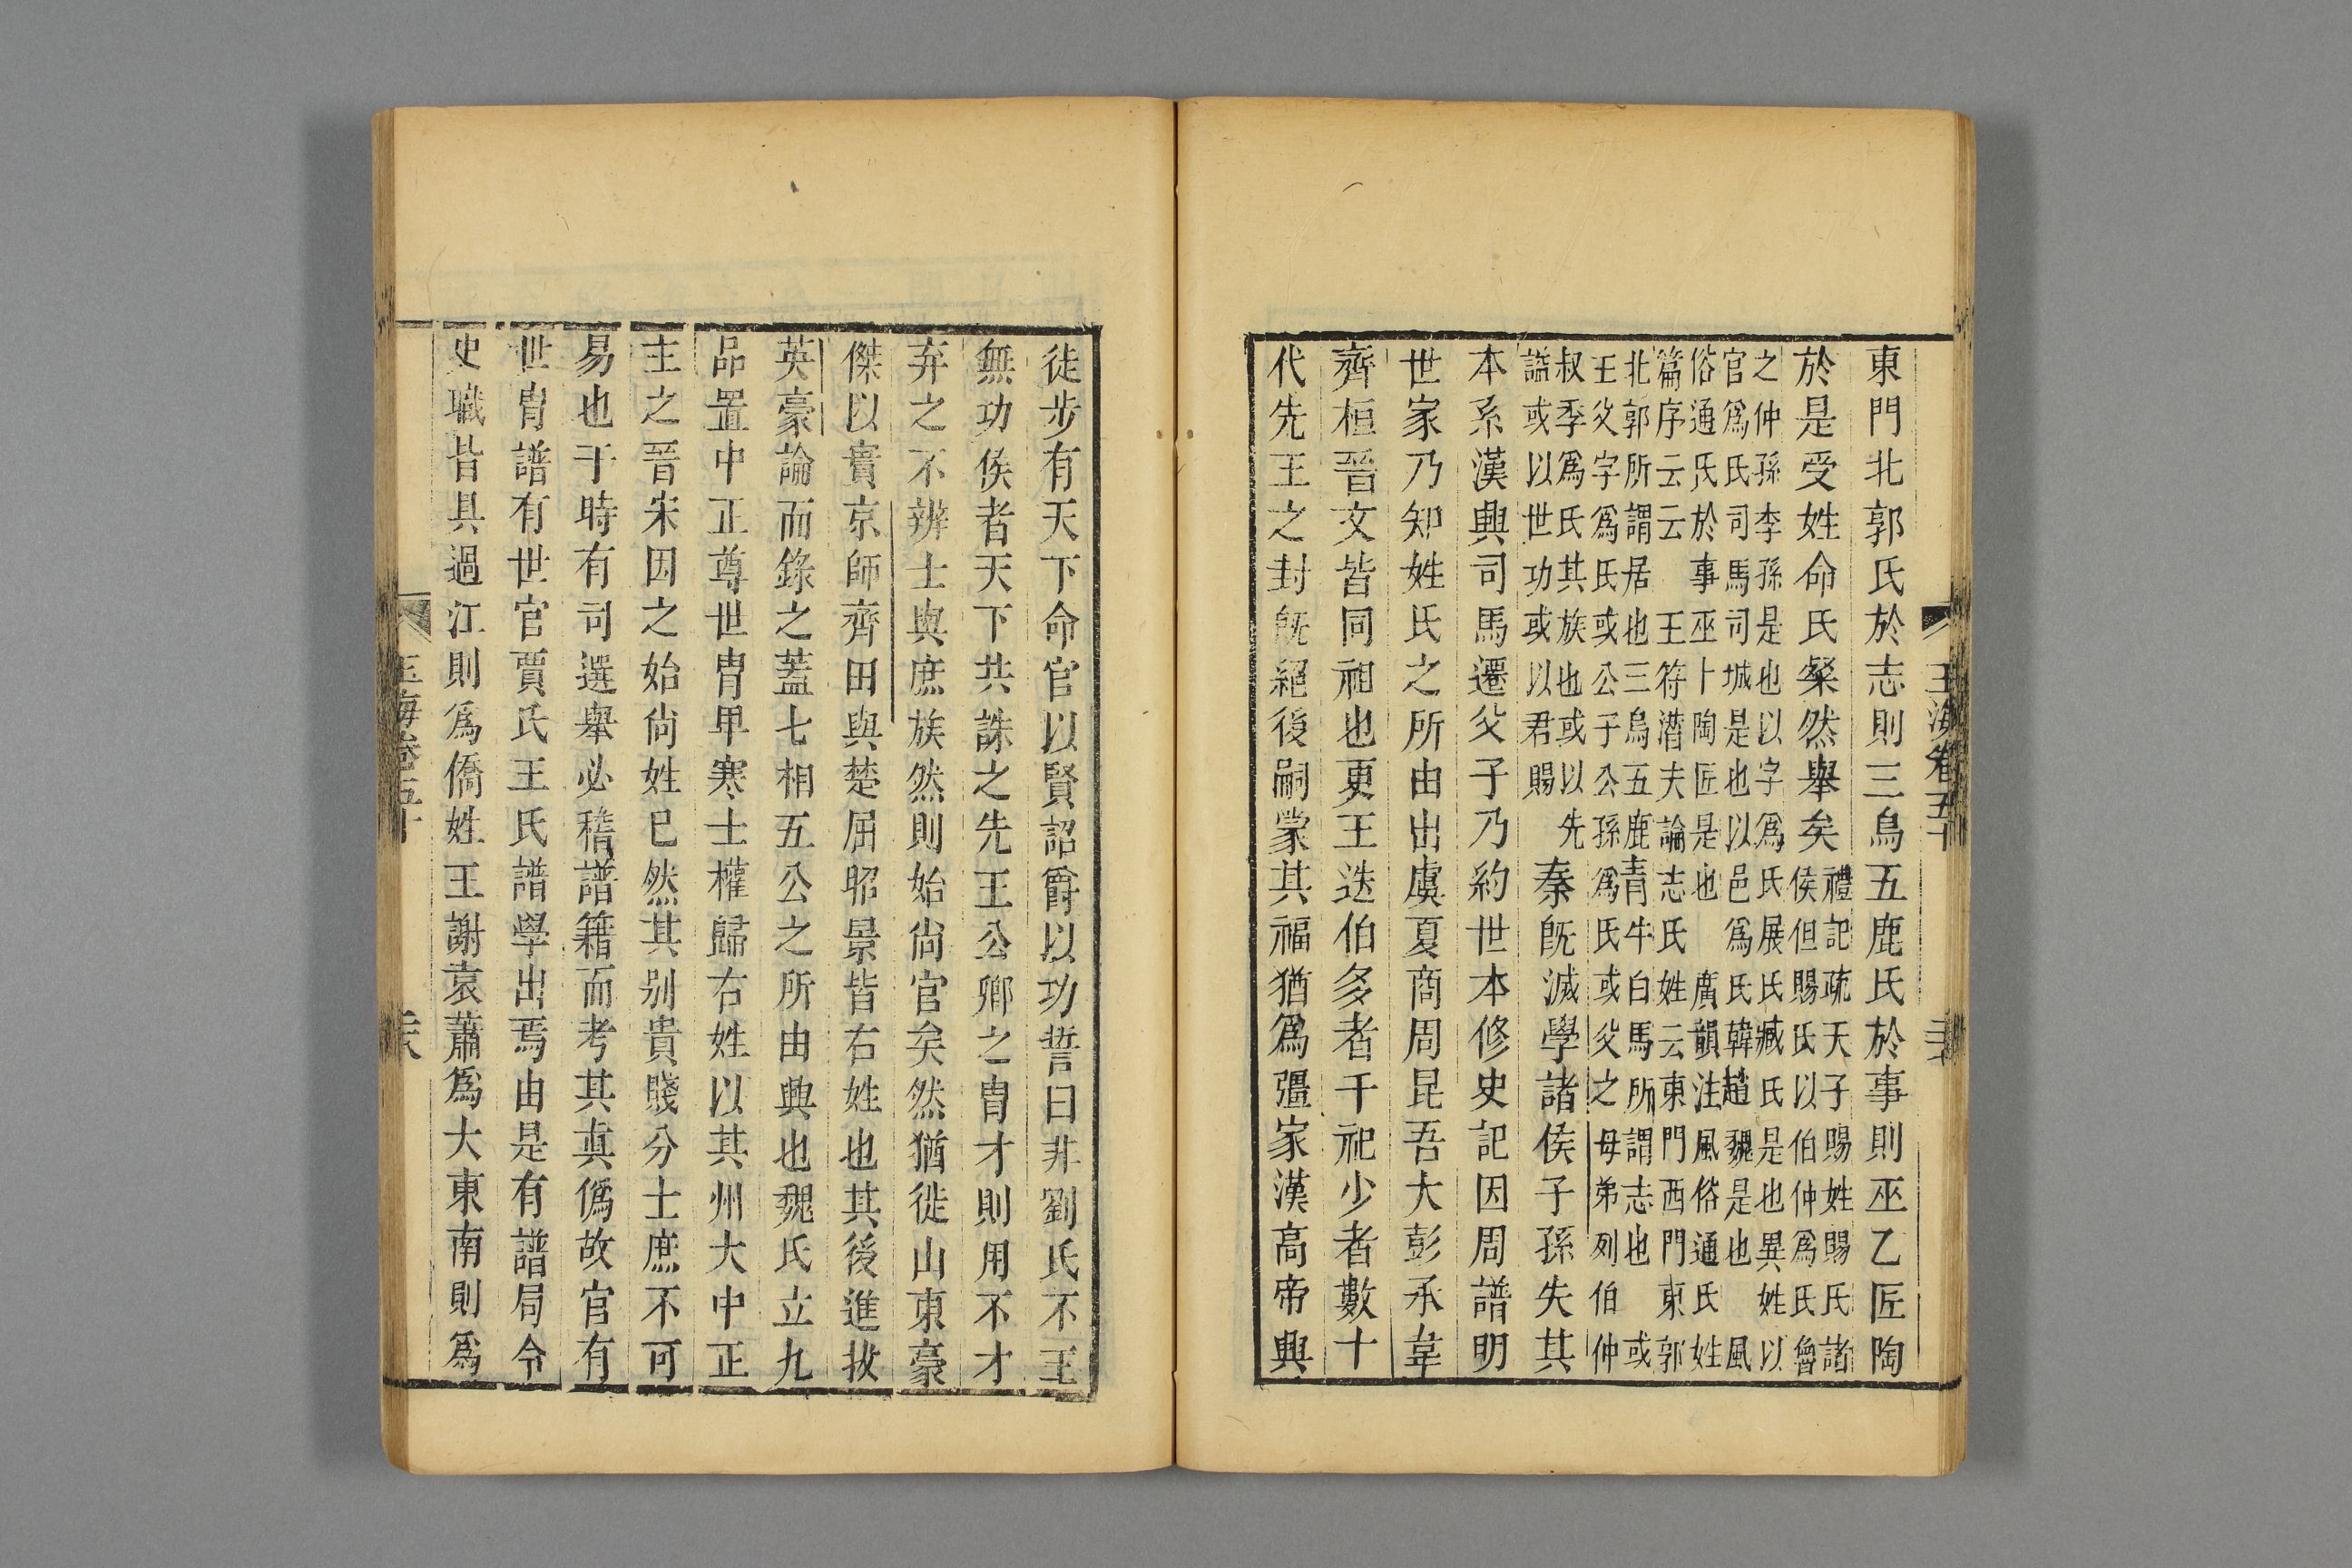 東門北郭氏於志則三烏五鹿氏於事則巫乙匠陶
於是受姓命氏粲然舉矣禮記疏天子賜姓賜氏諸
侯但賜氏以伯仲爲氏魯
之仲孫李孫是也以字爲氏展氏臧氏是也異姓以
官爲氏司馬司城是也以邑爲氏韓趙魏是也 風
俗通氏於事巫卜陶匠是也 廣韻注風俗通氏姓
篇序云云 王符潛夫論志氏姓云東門西門東郭
北郭所謂居也三烏五鹿青牛白馬所謂志也 或
王父字爲氏或公子公孫爲氏或父之母弟列伯仲
叔季爲氏其族也或以先
諡或以世功或以君賜
秦旣滅學諸侯子孫失其
本系漢興司馬遷父子乃約世本修史記因周譜明
世家乃知姓氏之所由出虞夏商周昆吾大彭承韋
齊桓晉文皆同祖也更王迭伯多者千祀少者數十
代先王之封旣絕後嗣蒙其福猶爲彊家漢高帝興
玉海卷五十
徒步有天下命官以賢詔爵以功誓曰非劉氏不王
無功侯者天下共誅之先王公卿之胄才則用不才
弃之不辨士與庶族然則始尙官矣然猶徙山東豪
傑以實京師齊田與楚屈昭景皆右姓也其後進拔
英豪論而錄之蓋七相五公之所由興也魏氏立九
品置中正尊世胄卑寒士權歸右姓以其州大中正
主之晉宋因之始尙姓已然其別貴賤分士庶不可
易也于時有司選舉必稽譜籍而考其眞僞故官有
世胄譜有世官賈氏王氏譜學出焉由是有譜局令
史職皆具過江則爲僑姓王謝袁蕭爲大東南則爲
玉海卷五十